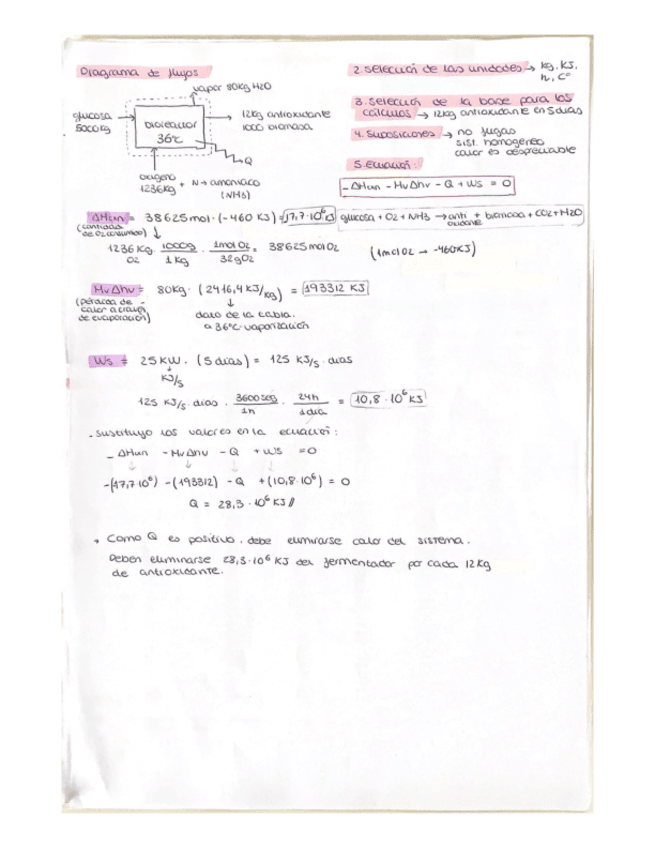 Diagrama de flujos
vapor 80Kg H2O
glucosa
5000kg
bioreactor
36°C
12kg antioxidante
1000 biomasa
Q
oxigeno
1236kg + N → amoniaco
(NH3)
2. selección de las unidades → kg, KJ,
h, C°
3. selección de la base para los
cálculos → 12kg antioxidante en 5 dias
4. suposiciones → no fugas
sist. homogeneo
calor es despreciable
5. Ecuación:
-ΔHrxn - MvΔhv - Q + Ws = 0
ΔHrxn = 38625mol · (-460 KJ) = -17,7·10⁶ KJ
(cantidad
de O2 consumido)
glucosa + O2 + NH3 → anti oxidante + biomasa + CO2 + H2O
1236 Kg O2 · 1000g/1Kg · 1mol O2/32g O2 = 38625 mol O2
(1mol O2 → -460KJ)
MvΔhv = 80Kg · (2416,4 KJ/Kg) = 193312 KJ
(pérdida de
calor a través
de evaporación)
dato de la tabla.
a 36°C · vaporización
Ws = 25 KW · (5 dias) = 125 KJ/s · dias
KJ/s
125 KJ/s · dias · 3600seg/1h · 24h/1dia = 10,8·10⁶ KJ
· sustituyo los valores en la ecuación:
- ΔHrxn - MvΔhv - Q + Ws = 0
-(-17,7·10⁶) - (193312) - Q + (10,8·10⁶) = 0
Q = 28,3 · 10⁶ KJ //
→ Como Q es positivo, debe eliminarse calor del sistema.
Deben eliminarse 28,3·10⁶ KJ del fermentador por cada 12Kg
de antioxidante.